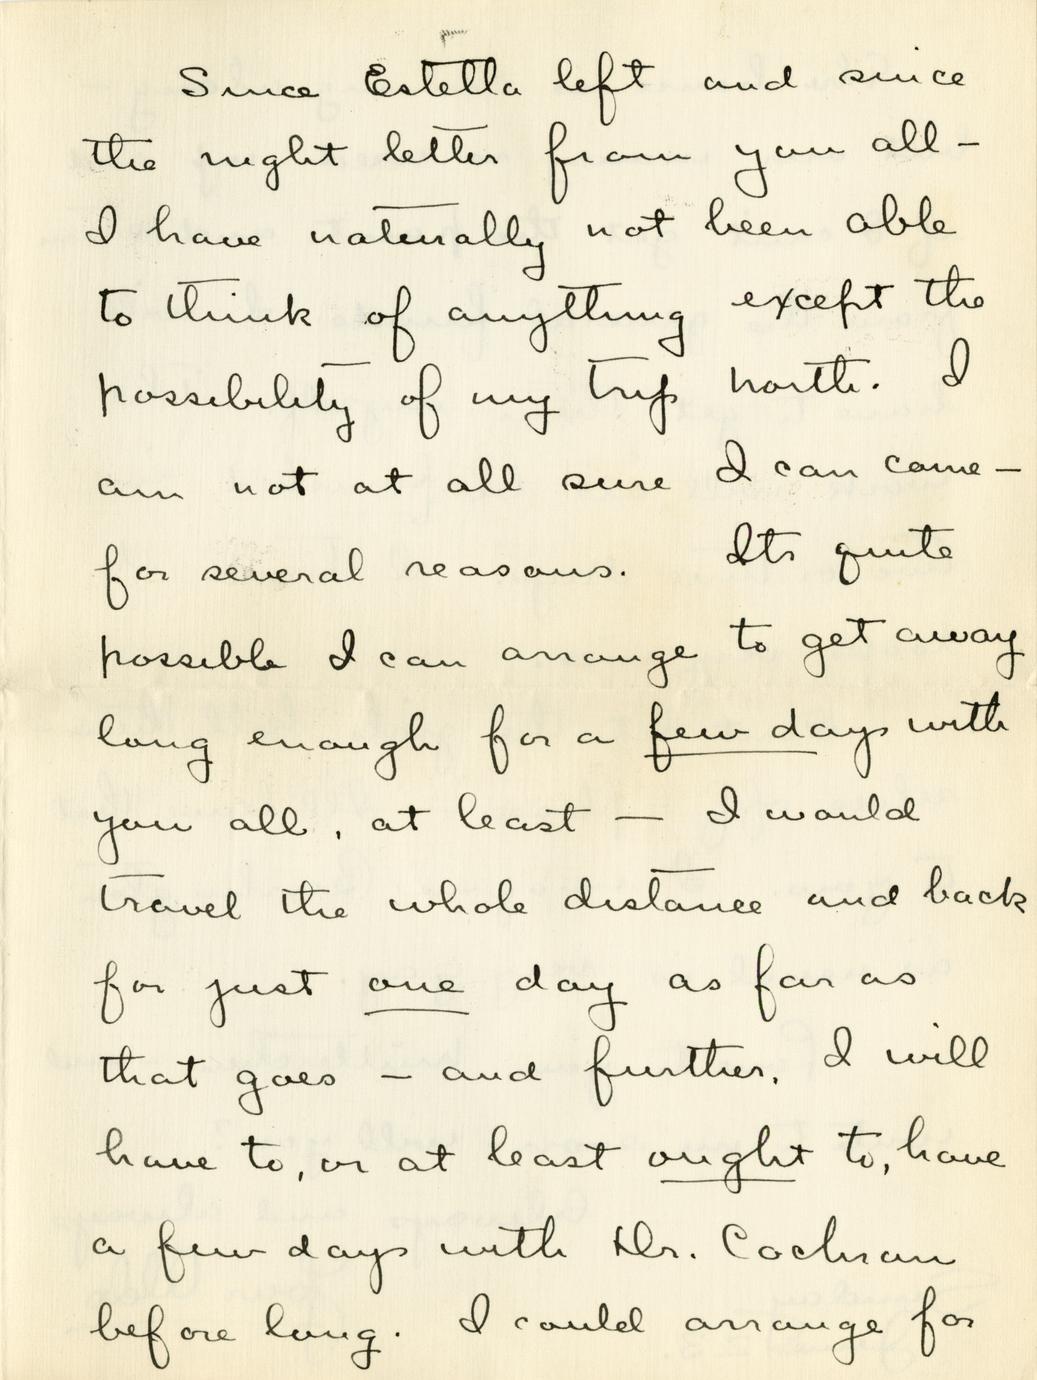 Since Estella left and since
the night letter from you all –
I have naturally not been able
to think of anything except the
possibility of my trip north. I
am not at all sure I can come –
for several reasons. Its quite
possible I can arrange to get away
long enough for a few days with
you all, at least — I would
travel the whole distance and back
for just one day as far as
that goes – and further, I will
have to, or at least ought to, have
a few days with Dr. Cochran
before long. I could arrange for